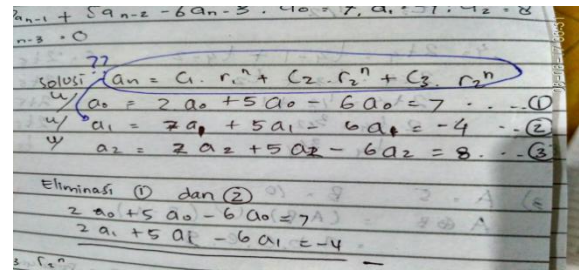 an-1 + 5an-2 - 6an-3 . a0 = 7, a1 = -4, a2 = 8
n-3 = 0
??
solusi : an = C1 . r1^n + C2 . r2^n + C3 . r2^n
u/ a0 = 2 a0 + 5 a0 - 6 a0 = 7 . . . . ①
u/ a1 = 2 a1 + 5 a1 - 6 a1 = -4 . . ②
u/ a2 = 2 a2 + 5 a2 - 6 a2 = 8 . . . ③
Eliminasi ① dan ②
2 a0 + 5 a0 - 6 a0 = 7
2 a1 + 5 a1 - 6 a1 = -4
3 . r2^n